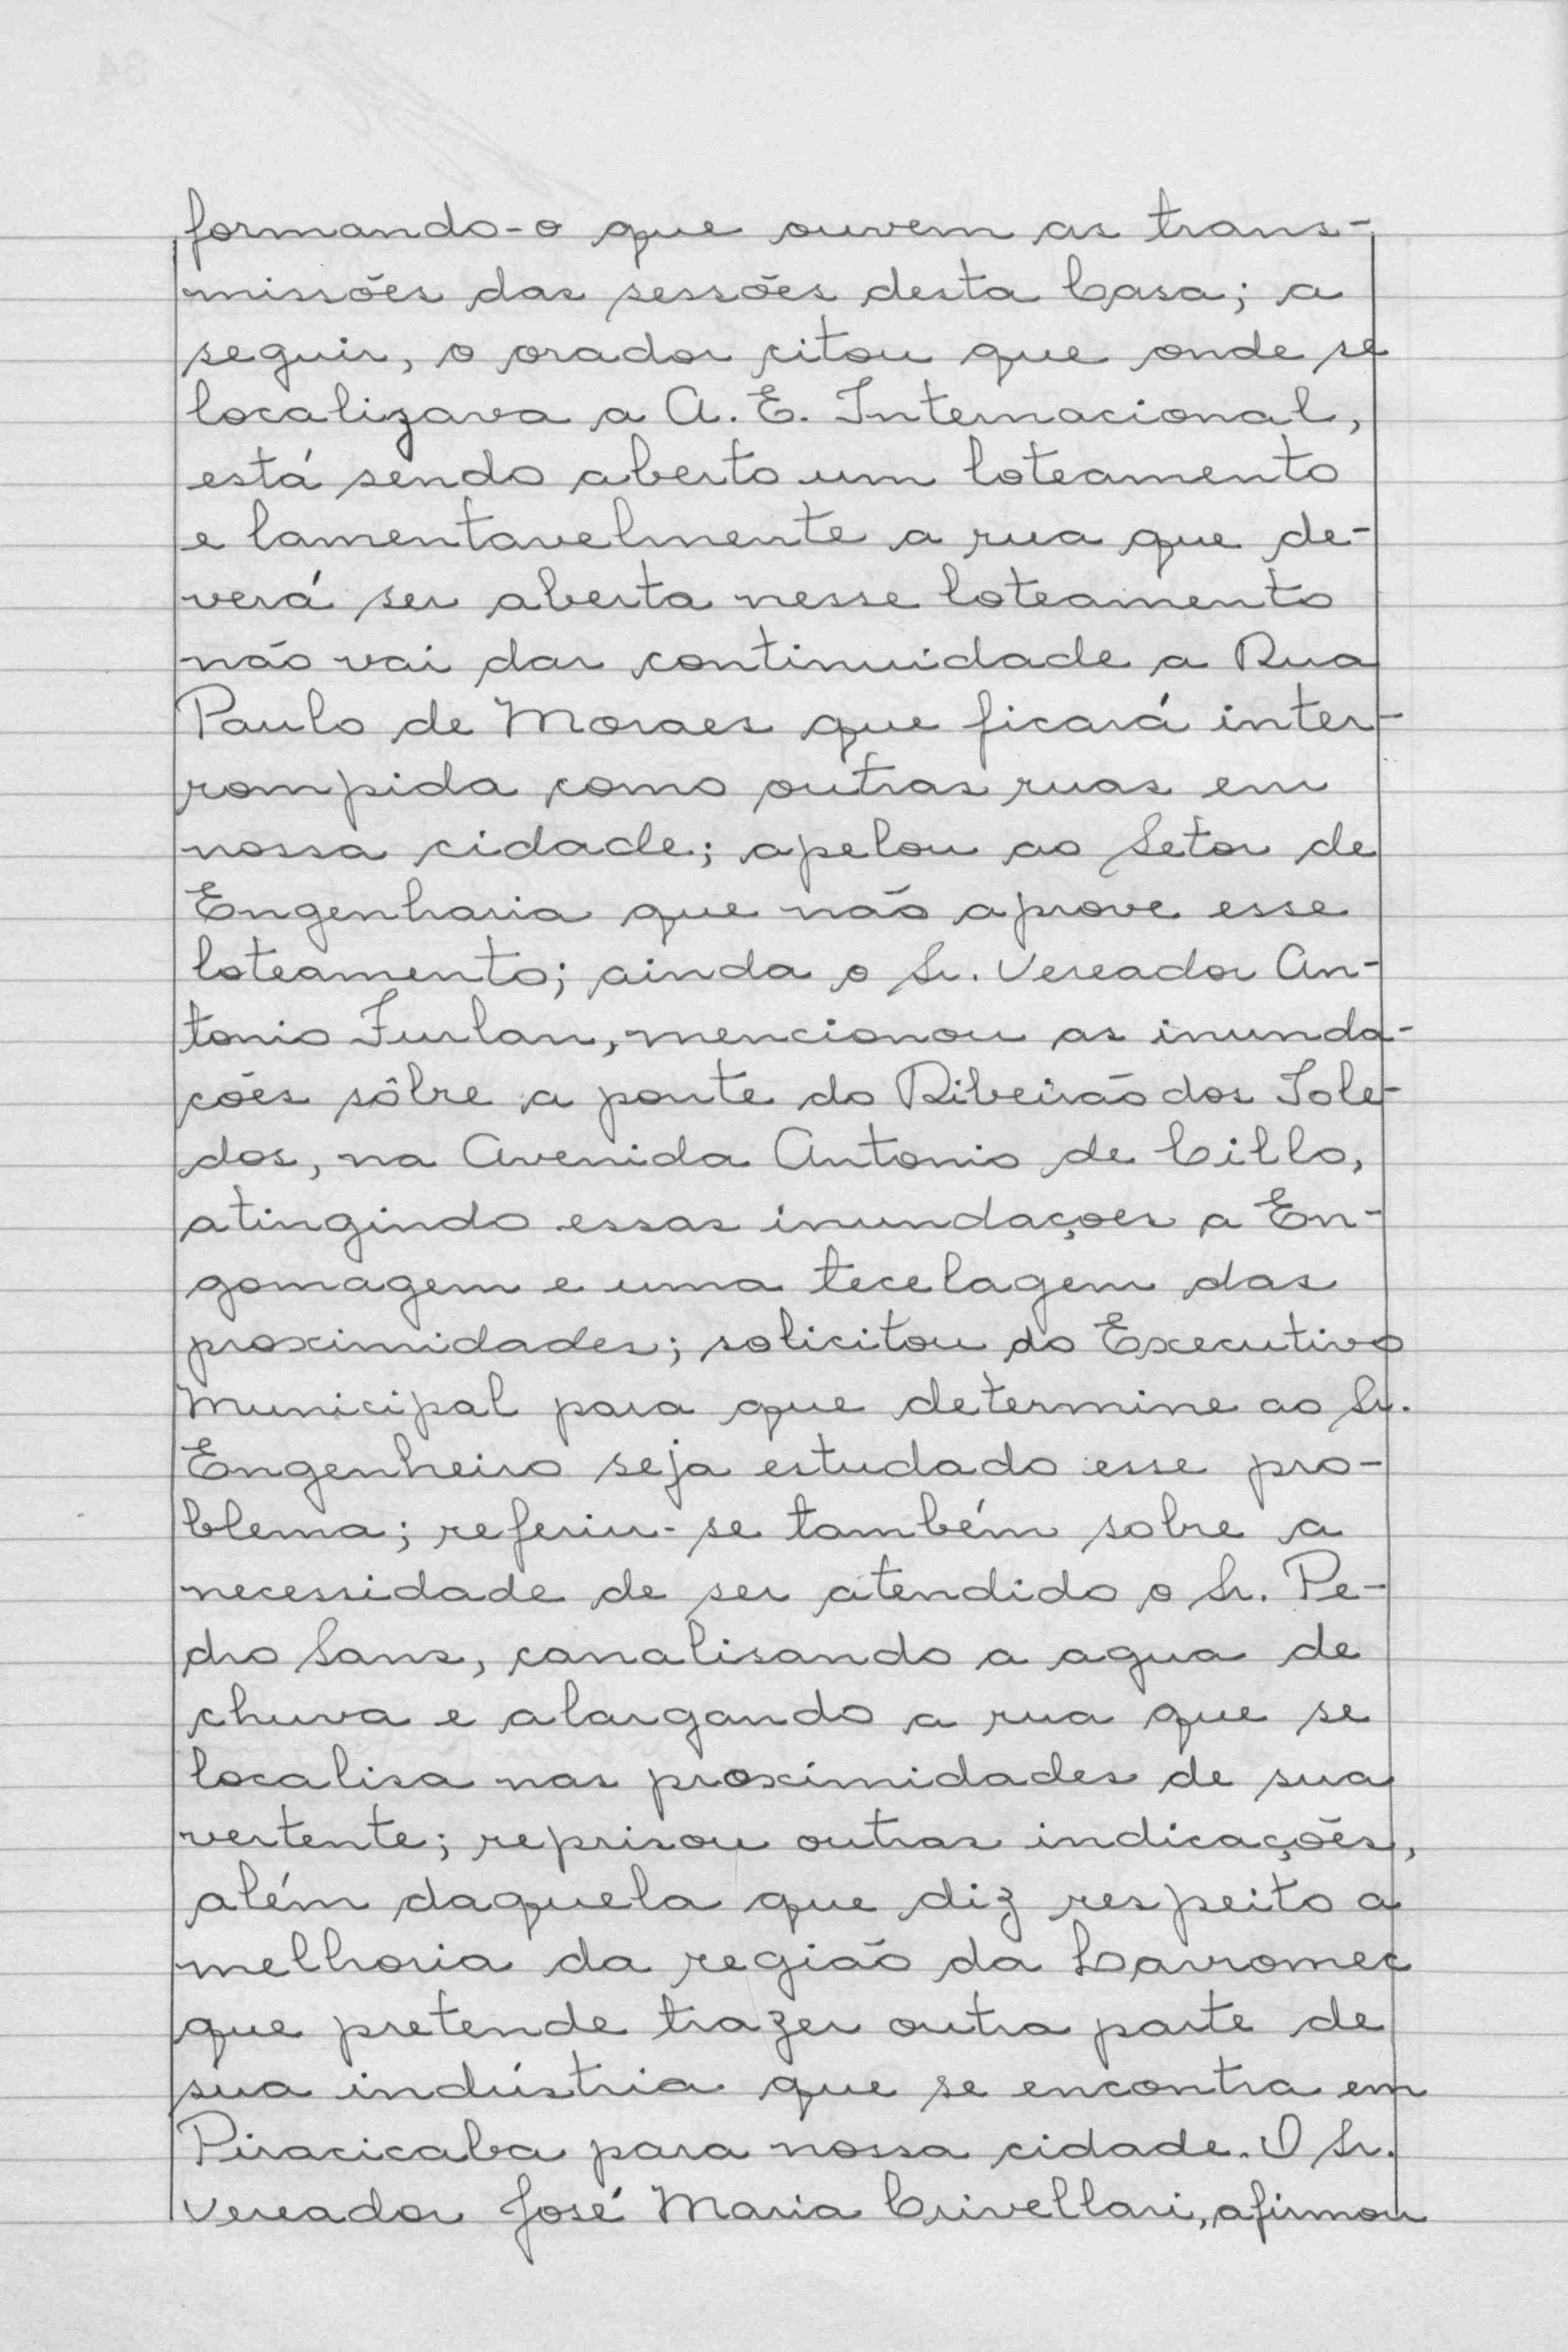 formando-o que ouvem as trans-
missões das sessões desta Casa; a
seguir, o orador citou que onde se
localizava a A. E. Internacional,
está sendo aberto um loteamento
e lamentavelmente a rua que de-
verá ser aberta nesse loteamento
não vai dar continuidade a Rua
Paulo de Moraes que ficará inter-
rompida como outras ruas em
nossa cidade; apelou ao Setor de
Engenharia que não aprove esse
loteamento; ainda o Sr. Vereador An-
tonio Furlan, mencionou as inunda-
ções sôbre a ponte do Ribeirão dos Tole-
dos, na Avenida Antonio de Cillo,
atingindo essas inundaçoes a En-
gomagem e uma tecelagem das
proximidades; solicitou do Executivo
Municipal para que determine ao Sr.
Engenheiro seja estudado esse pro-
blema; referiu-se também sobre a
necessidade de ser atendido o Sr. Pe-
dro Sans, canalisando a agua de
chuva e alargando a rua que se
localisa nas proximidades de sua
vertente; reprisou outras indicações,
além daquela que diz respeito a
melhoria da região da Lavromec
que pretende trazer outra parte de
sua indústria que se encontra em
Piracicaba para nossa cidade. O Sr.
Vereador José Maria Crivellari, afirmou